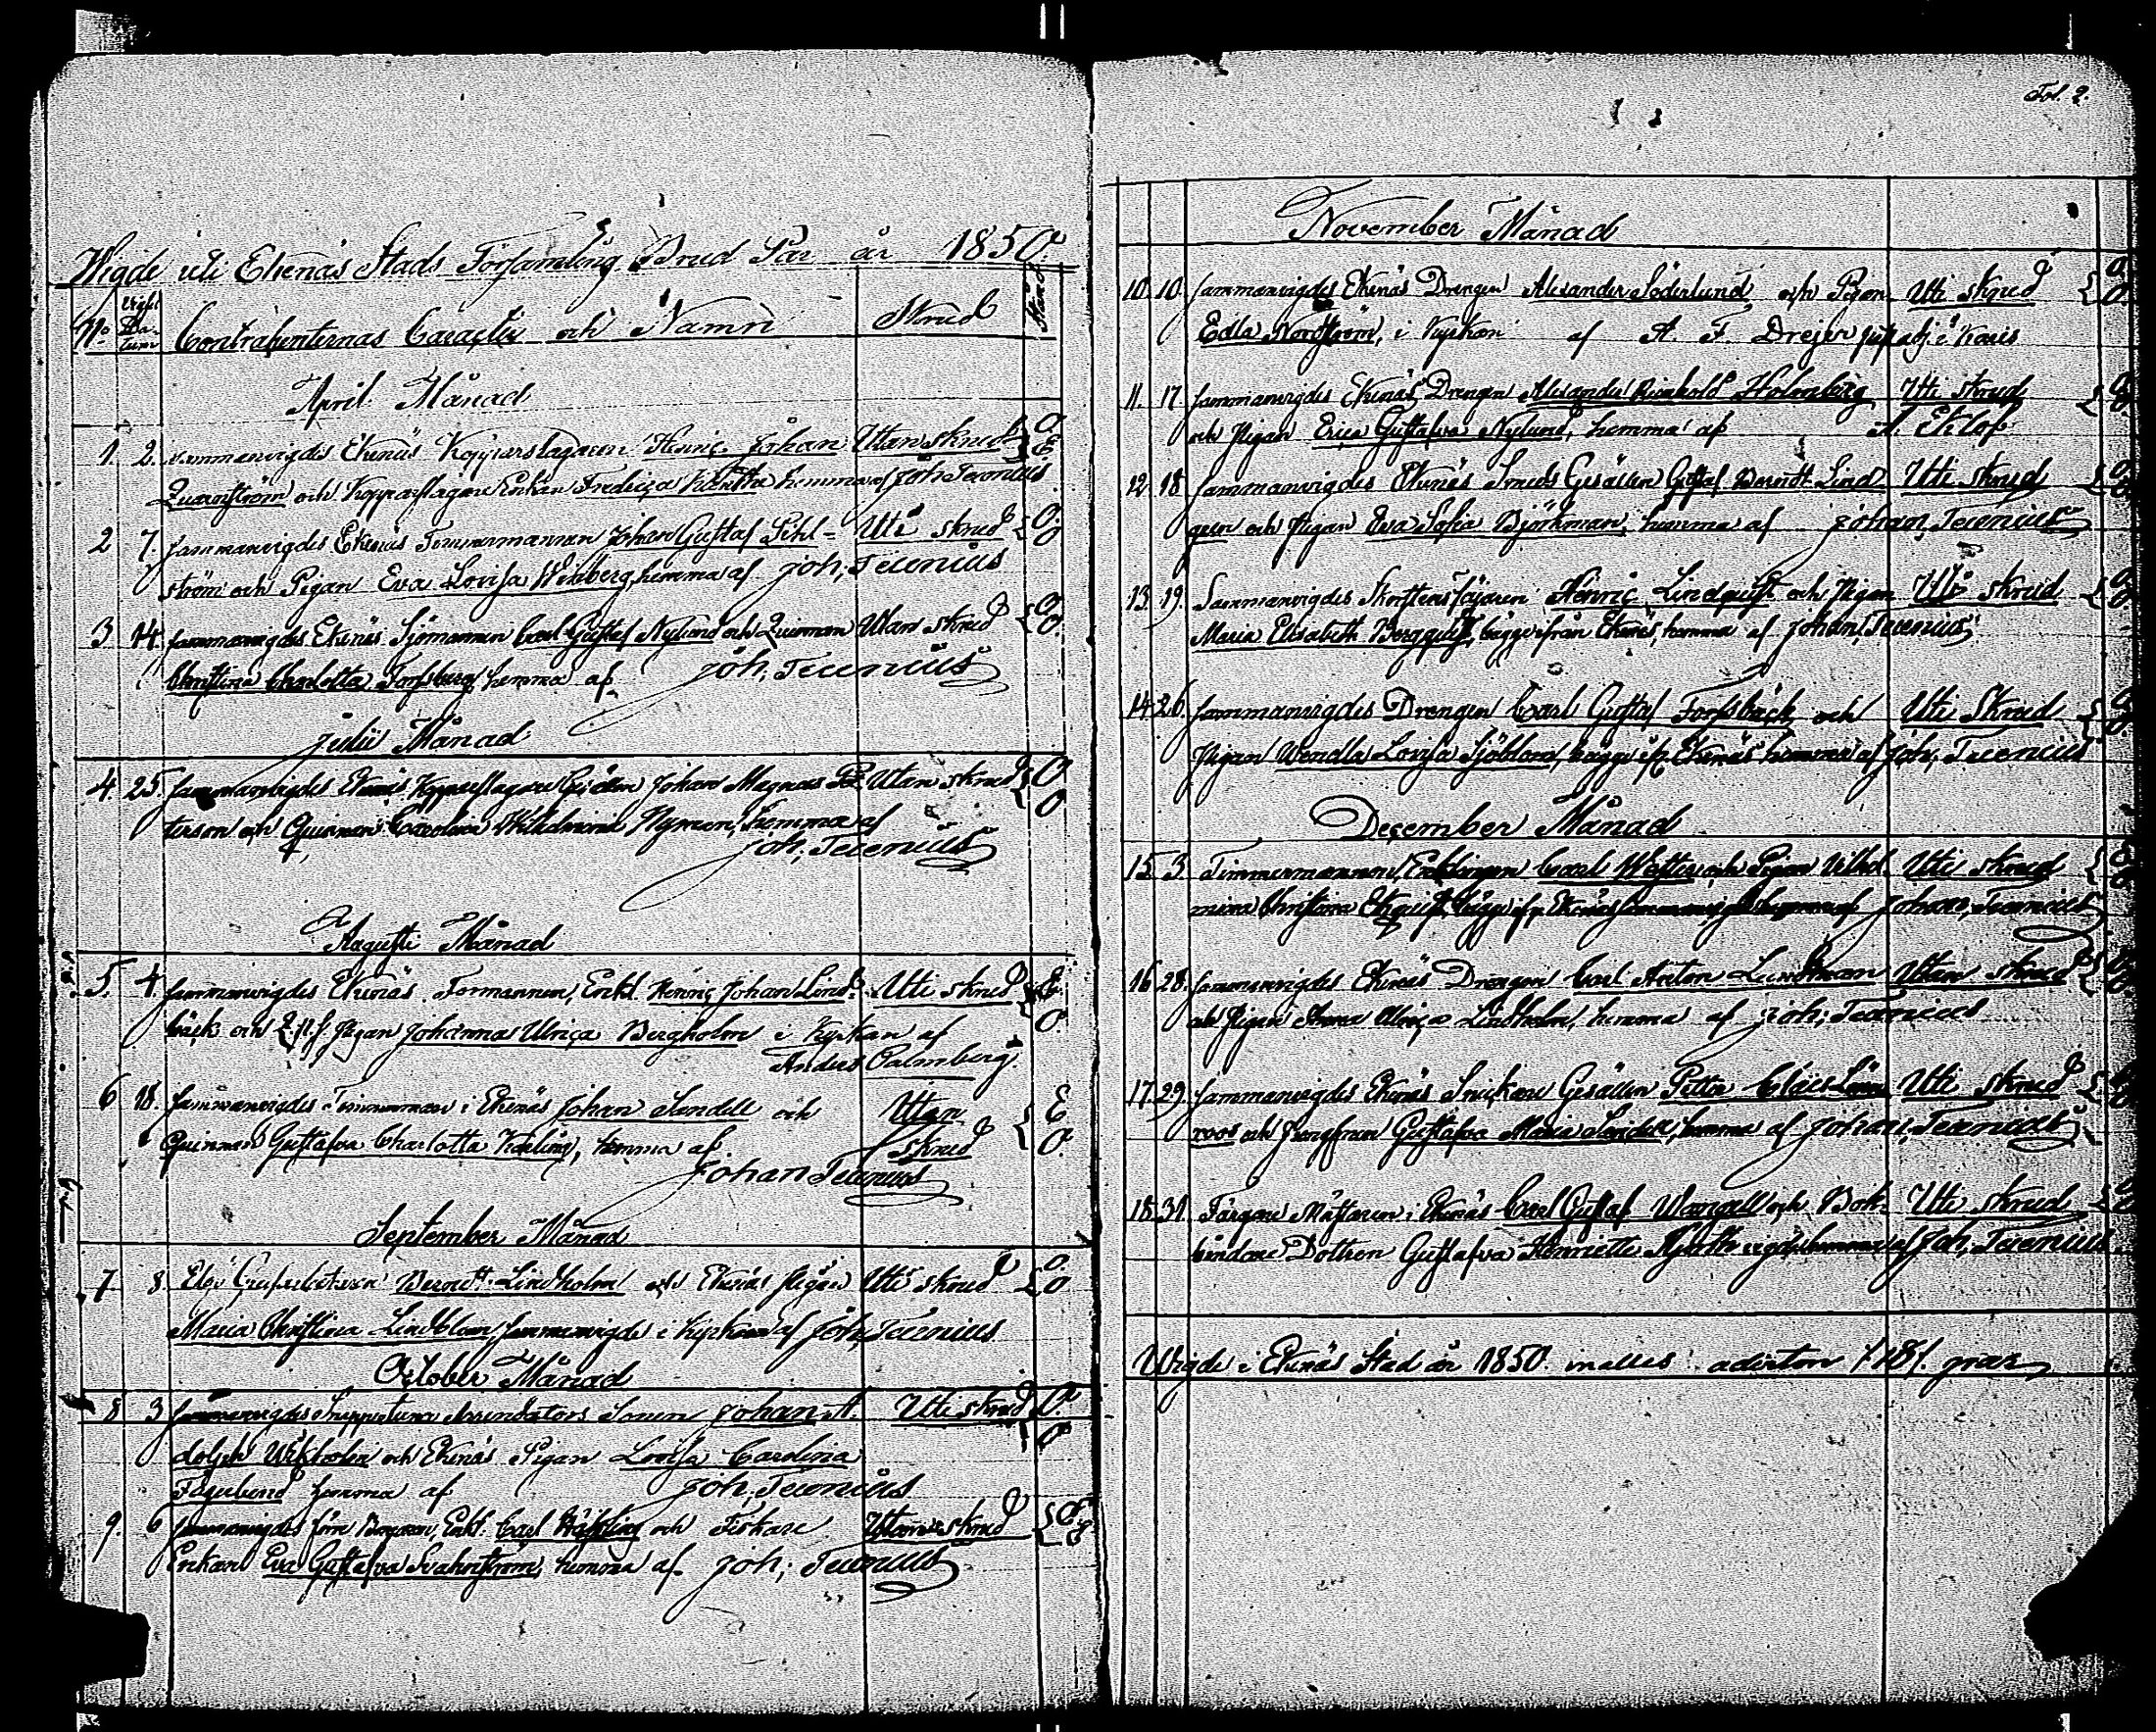 Fol. 2.
Wigde uti Ekenäs Stads Församling Brud Par år 1850.
No Wigsel Datum Contrahenternas Caractèr och Namn Skrud Stånd
April Månad
1. 2. sammanvigdes Ekenäs Kopparslagaren Henric Johan Utan skrud O E
Quarnström och Kopparslagare Enkan Fredrica hemma af Joh. Tecenius
2 7. sammanvigdes Ekenäs Timmermannen Johan Gustaf Sihl- Uti skrud O O
ström och Pigan Eva Lovisa Winberg, hemma af Joh; Tecenius
3 14. sammanvigdes Ekenäs Sjömannen Carl Gustaf Nylund och Quinnan Utan skrud O O
Christina Charlotta Forssberg, hemma af Joh; Tecenius
Julii Månad
4. 25. sammanvigdes Ekenäs Kopparslagare Gesällen Johan Magnus Pe- Utan skrud O O
terson och Quinnan Carolina Wilhelmina Nyman, hemma af
Joh; Tecenius
Augusti Månad
5. 4 sammanvigdes Ekenäs Formannen, Enkl. Henric Johan Lind- Uti skrud E O
bäck och Pigan Johanna Ulrica Bergholm i Kyrkan af
Anders Palmberg.
6 18. sammanvigdes Timmerman i Ekenäs Johan Sandell och Utan E
Quinnan Gustafva Charlotta Karling, hemma af skrud O
Johan Tecenius
September Månad
7 8. Berndt Lindholm och Ekenäs Pigan Uti skrud O O
Maria Christina Lindblom, sammanvigde i kyrkan af Joh; Tecenius
October Månad
8 3 sammanvigdes Arendators Sonen Johan A- Uti skrud O
dolph och Ekenäs Pigan Lovisa Carolina O
Fagerlund hemma af Joh; Tecenius
9. 6 sammanvigdes förre Enkl. Carl och Fiskare Utan skrud E
Enkan Eva Gustafva hemma af Joh; Tecenius
November Månad
10. 10. sammanvigdes Ekenäs Drengen Alexander Söderlund och Pigan Uti skrud O O
Edla Nordström, i Kyrkan af A. F. Drejer adj. i Karis
11. 17. sammanvigdes Ekenäs Drengen Alexander Reinhold Holmberg Uti skrud
och Pigan Erica Gustafva Nylund, hemma af A. Eklöf
12. 18 sammanvigdes Ekenäs Smeds Gesällen Gustaf Berndt Lind- Uti skrud
gren och Pigan Eva Sofia Björkman, hemma af Johan, Tecenius
13. 19. Sammanvigdes Skorstensfejaren Henric Lindquist och Pigan Uti skrud
Maria Elisabeth Bergquist, bägge ifrån Ekenäs, hemma af Johan, Tecenius
14. 26. sammanvigdes Drengen Carl Gustaf Forssbäck och Uti Skrud
Pigan Wendla Lovisa Sjöblom, bägge ifr. Ekenäs hemma af Joh; Tecenius
December Månad
15. 3. Timmermannen, Enklingen Carl Wester och Pigan Vilhel- Uti skrud
mina Christina Ekquist, bägge ifr. Ekenäs sammanvigde hemma af Johan, Tecenius
16. 28. sammanvigdes Ekenäs Drengen Carl Anton Lundman Utan skrud
och Pigan Anna Ulrica Lindholm, hemma af Joh; Tecenius
17. 29. sammanvigdes Ekenäs Snickare Gesällen Petter Claës Löen- Uti skrud
roos och Jungfrun Gustafva Maria Sandell, hemma af Johan, Tecenius
18. 31. Färgare Mästaren i Ekenäs Carl Gustaf Warvall och Bok- Uti skrud
bindare Dottren Gustafva Henriette hemma af Joh; Tecenius
Wigde i Ekenäs Stad år 1850. inalles aderton /.18/. prar